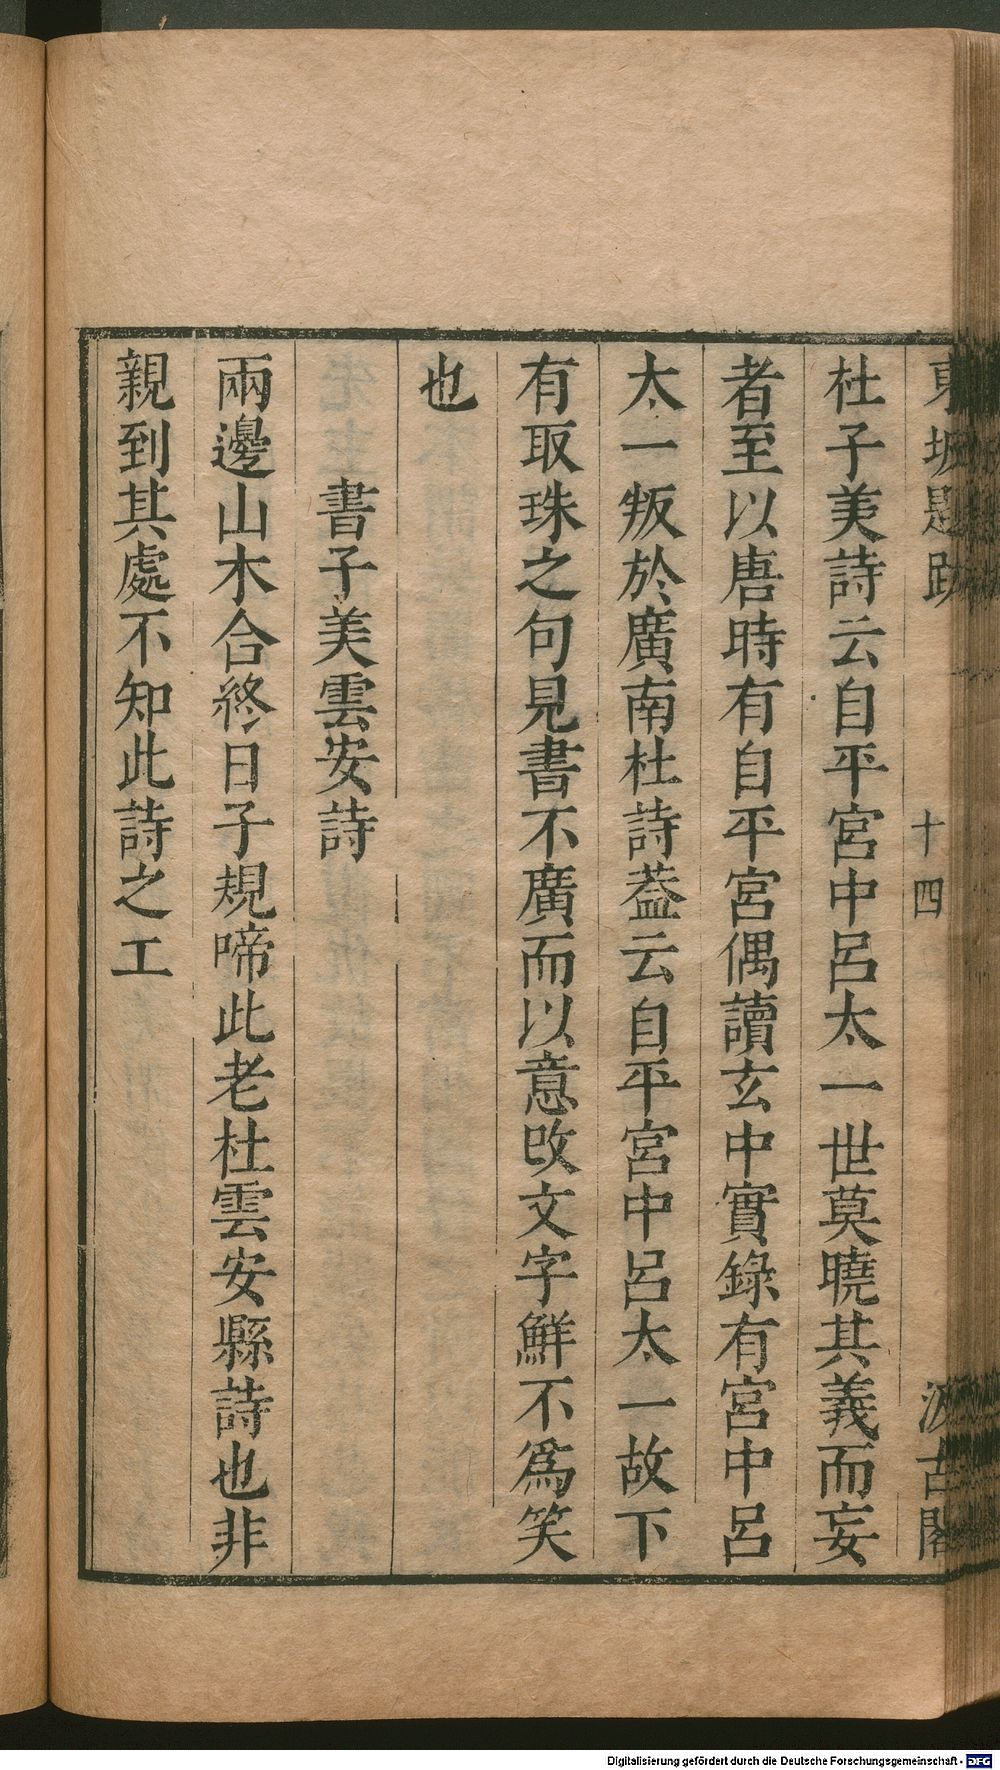 東坡題跋 十四 汲古閣
杜子美詩云自平宮中呂太一世莫曉其義而妄
者至以唐時有自平宮偶讀玄中實錄有宮中呂
太一叛於廣南杜詩葢云自平宮中呂太一故下
有取珠之句見書不廣而以意改文字鮮不爲笑
也
書子美雲安詩
兩邊山木合終日子規啼此老杜雲安縣詩也非
親到其處不知此詩之工
Digitalisierung gefördert durch die Deutsche Forschungsgemeinschaft - DFG